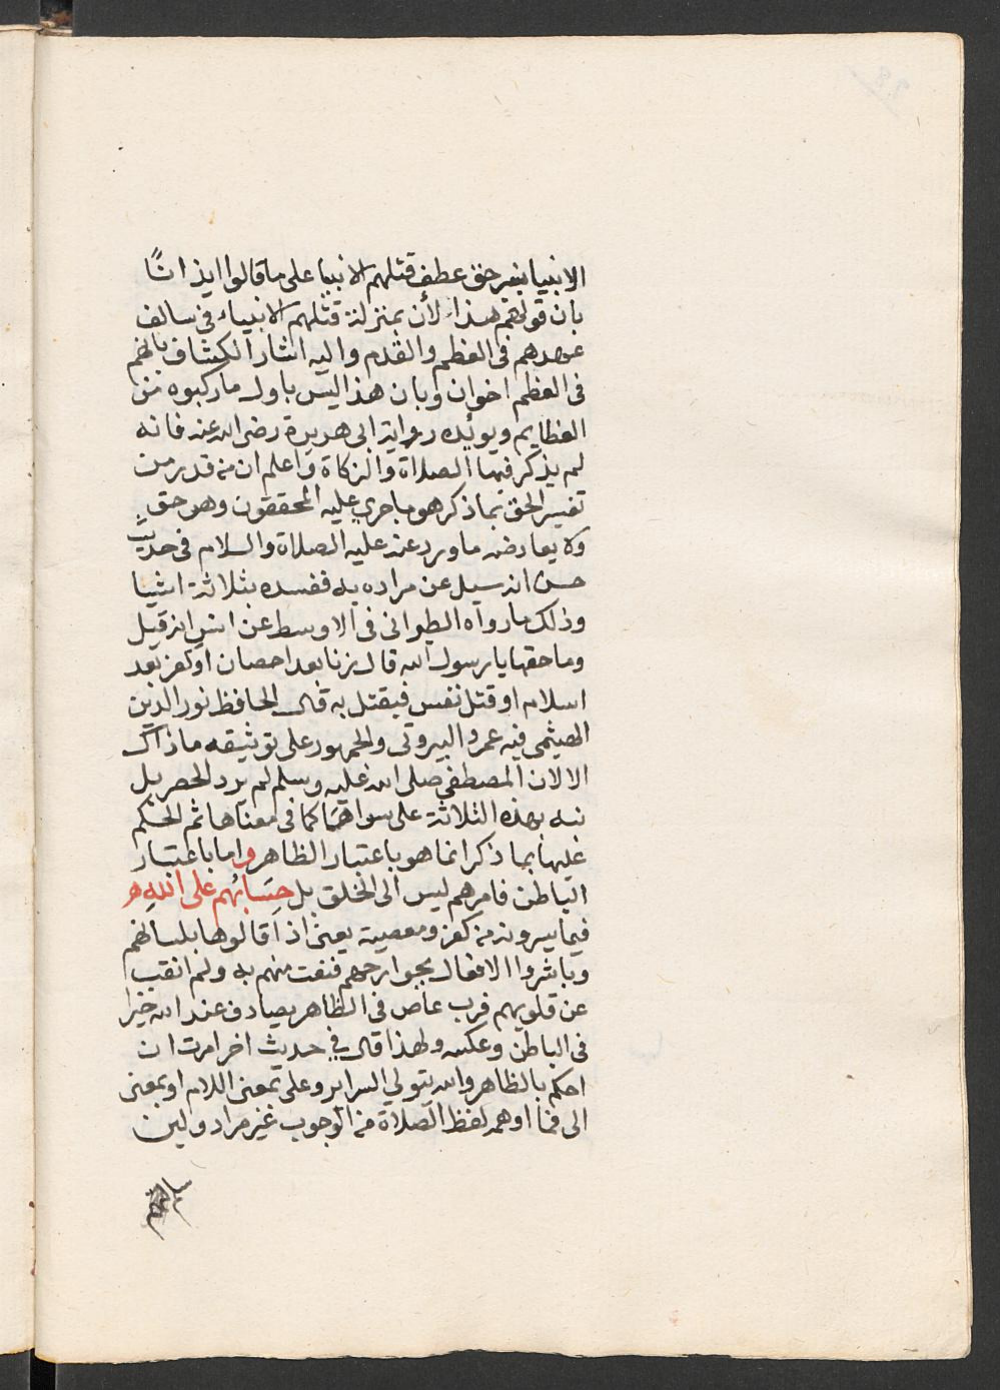 الانبيا بغير حق عطف قتلهم الانبيا على ما قالوا ايذانًا
بان قولهم هذا لأن بمنزلة قتلهم الانبياء في سالف
عهدهم في العظم والقدم واليه اشار الكشاف بانهم
في العظم اخوان وبان هذا ليس باول ما ركبوه من
العظايم ويوئده رواية ابى هريرة رضى الله عنه فانه
لم يذكر فيها الصلاة والزكاة واعلم ان من قدر من
تفسير الحق بما ذكر هو ما جري عليه المحققون وهو حق
ولا يعارضه ما ورد عنه عليه الصلاة والسلام في حديث
حسن انه سيل عن مراده به ففسره بثلاثة اشيا
وذلك ما رواه الطبراني في الاوسط عن انس انه قيل
وما حقها يا رسول الله قال زنا بعد احصان او كفر بعد
اسلام او قتل نفس فيقتل به قال الحافظ نور الدين
الهيثمي فيه عمرو البيروتي والجمهور على توثيقه ما ذاك
الا لان المصطفى صلى الله عليه وسلم لم يرد الحصر بل
نبه بهذه الثلاثة على سواها مما كما في معناها ثم الحكم
عليها بما ذكر انما هو باعتبار الظاهر واما باعتبار
الباطن فامرهم ليس الى الخلق بل حِسَابُهم على اللهِ هو
فيما يسرونه من كفر ومعصية يعنى اذا قالوها بلسانهم
وباشروا الافعال بجوارحهم قنعت منهم به ولم انقب
عن قلوبهم فرب عاص في الظاهر يصادف عند الله خيرا
في الباطن وعكسه ولهذا قال في حديث اخر امرت ان
احكم بالظاهر والله يتولي السراير وعلى بمعنى اللام او بمعنى
الى فما اوهمه لفظ الصلاة من الوجوب غير مراد ولين